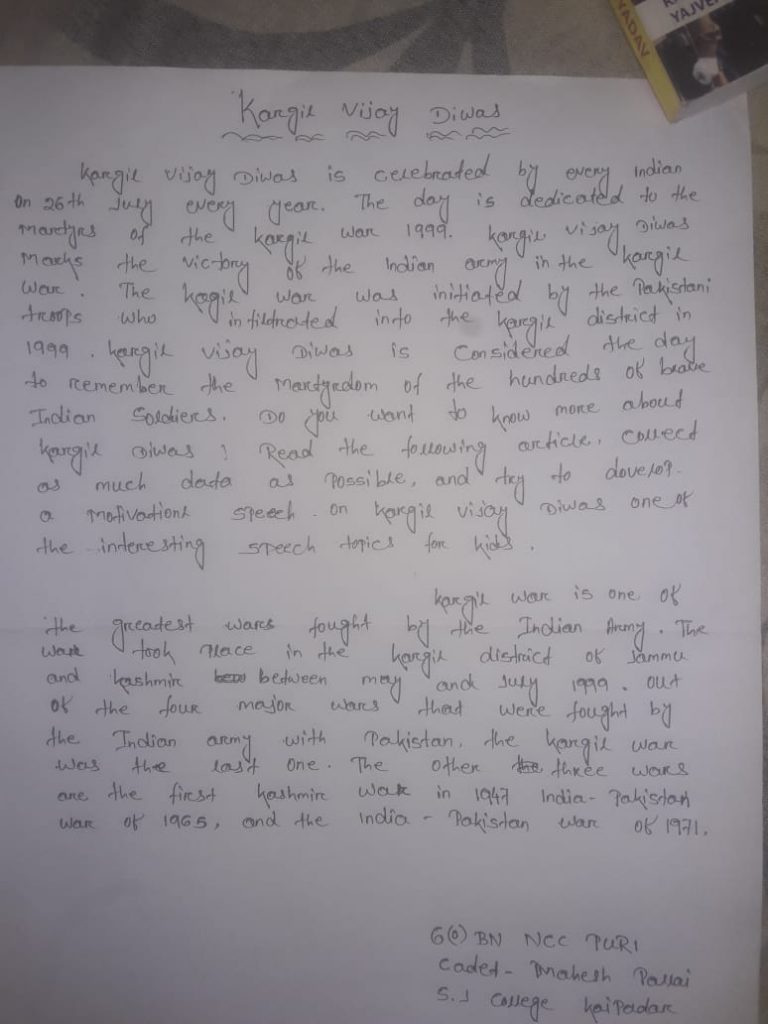 YADAV
YAJVE
Kargil Vijay Diwas
Kargil Vijay Diwas is celebrated by every Indian
On 26th July every year. The day is dedicated to the
Martyrs of the Kargil war 1999. Kargil Vijay Diwas
Marks the victory of the Indian army in the Kargil
War. The Kagil war was initiated by the Pakistani
troops who infiltrated into the Kargil district in
1999. Kargil Vijay Diwas is Considered the day
to remember the Martyrdom of the hundreds of brave
Indian Soldiers. Do you want to know more about
Kargil Diwas ! Read the following article, Collect
as much data as Possible, and try to dovelop.
a Motivationl speech on Kargil Vijay Diwas one of
the interesting speech topics for kids.
Kargil war is one of
the greatest wars fought by the Indian Army. The
war took Place in the Kargil district of Jammu
and Kashmir between may and July 1999. Out
of the four major wars that were fought by
the Indian army with Pakistan, the Kargil war
was the last One. The other three wars
are the first Kashmir War in 1947 India-Pakistan
war of 1965, and the India - Pakistan war of 1971.
6(O) BN NCC PURI
Cadet- Mahesh Pallai
S.J College Kaipadar